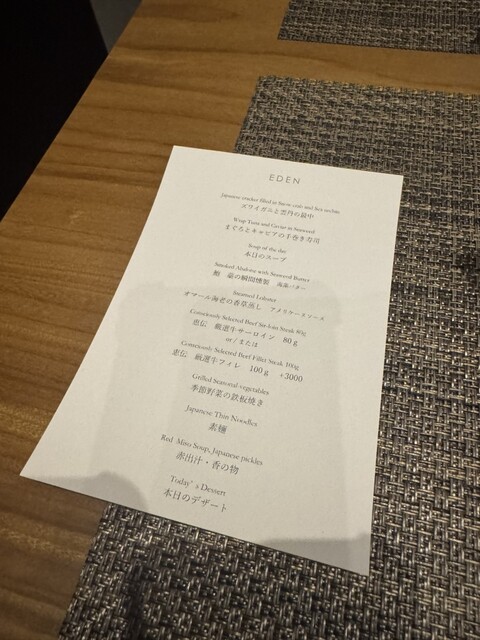 EDEN
Japanese cracker filled in Snow crab and Sea urchin
ズワイガニと雲丹の最中
Wrap Tuna and Caviar in Seaweed
まぐろとキャビアの手巻き寿司
Soup of the day
本日のスープ
Smoked Abalone with Seaweed Butter
鮑 藁の瞬間燻製 海藻バター
Steamed Lobster
オマール海老の香草蒸し アメリケーヌソース
Consciously Selected Beef Sirloin Steak 80g
恵伝 厳選牛サーロイン 80g
or / または
Consciously Selected Beef Fillet Steak 100g
恵伝 厳選牛フィレ 100g +3000
Grilled Seasonal vegetables
季節野菜の鉄板焼き
Japanese Thin Noodles
素麺
Red Miso Soup, Japanese pickles
赤出汁・香の物
Today' s Dessert
本日のデザート